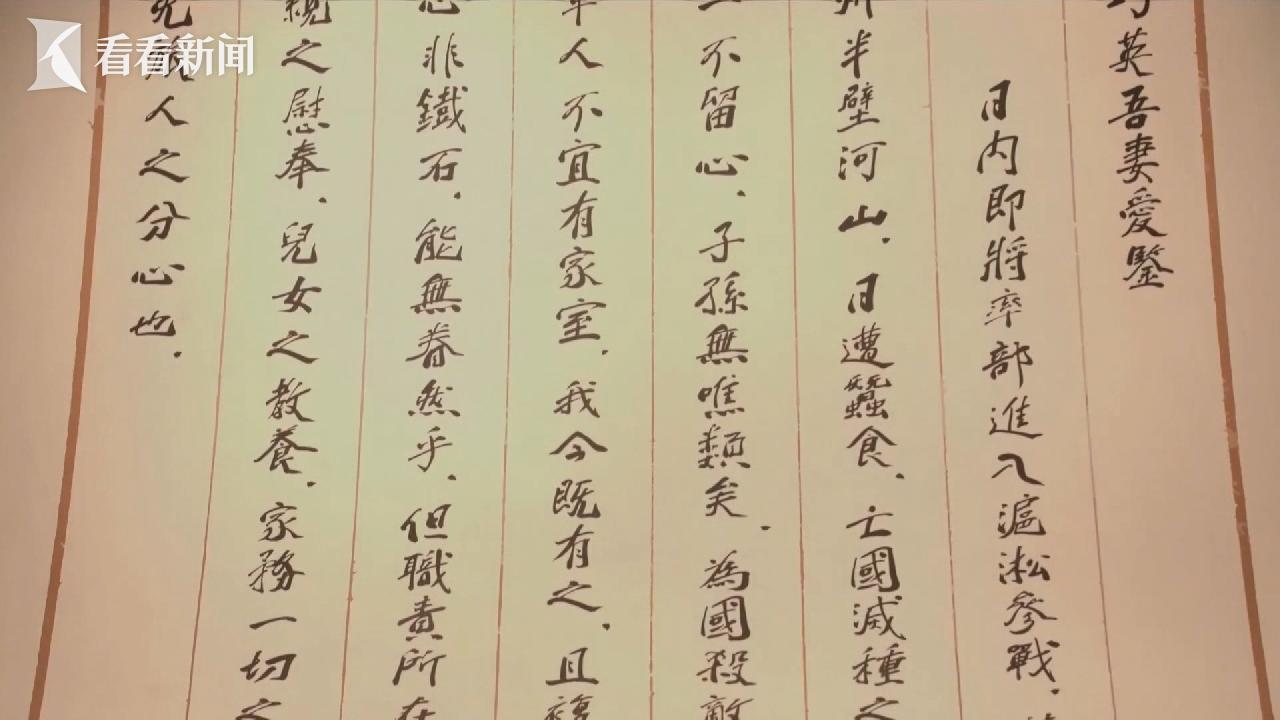 看看新闻
英吾妻愛鑒
日内即將率部進入滬淞參戰.
半壁河山.日遭蠶食.亡國滅種之
不留心.子孫無噍類矣.為國殺敵
人不宜有家室.我今既有之.且
非鐵石.能無眷然乎.但職責所在
親之慰奉.兒女之教養.家務一切之
人之分心也.